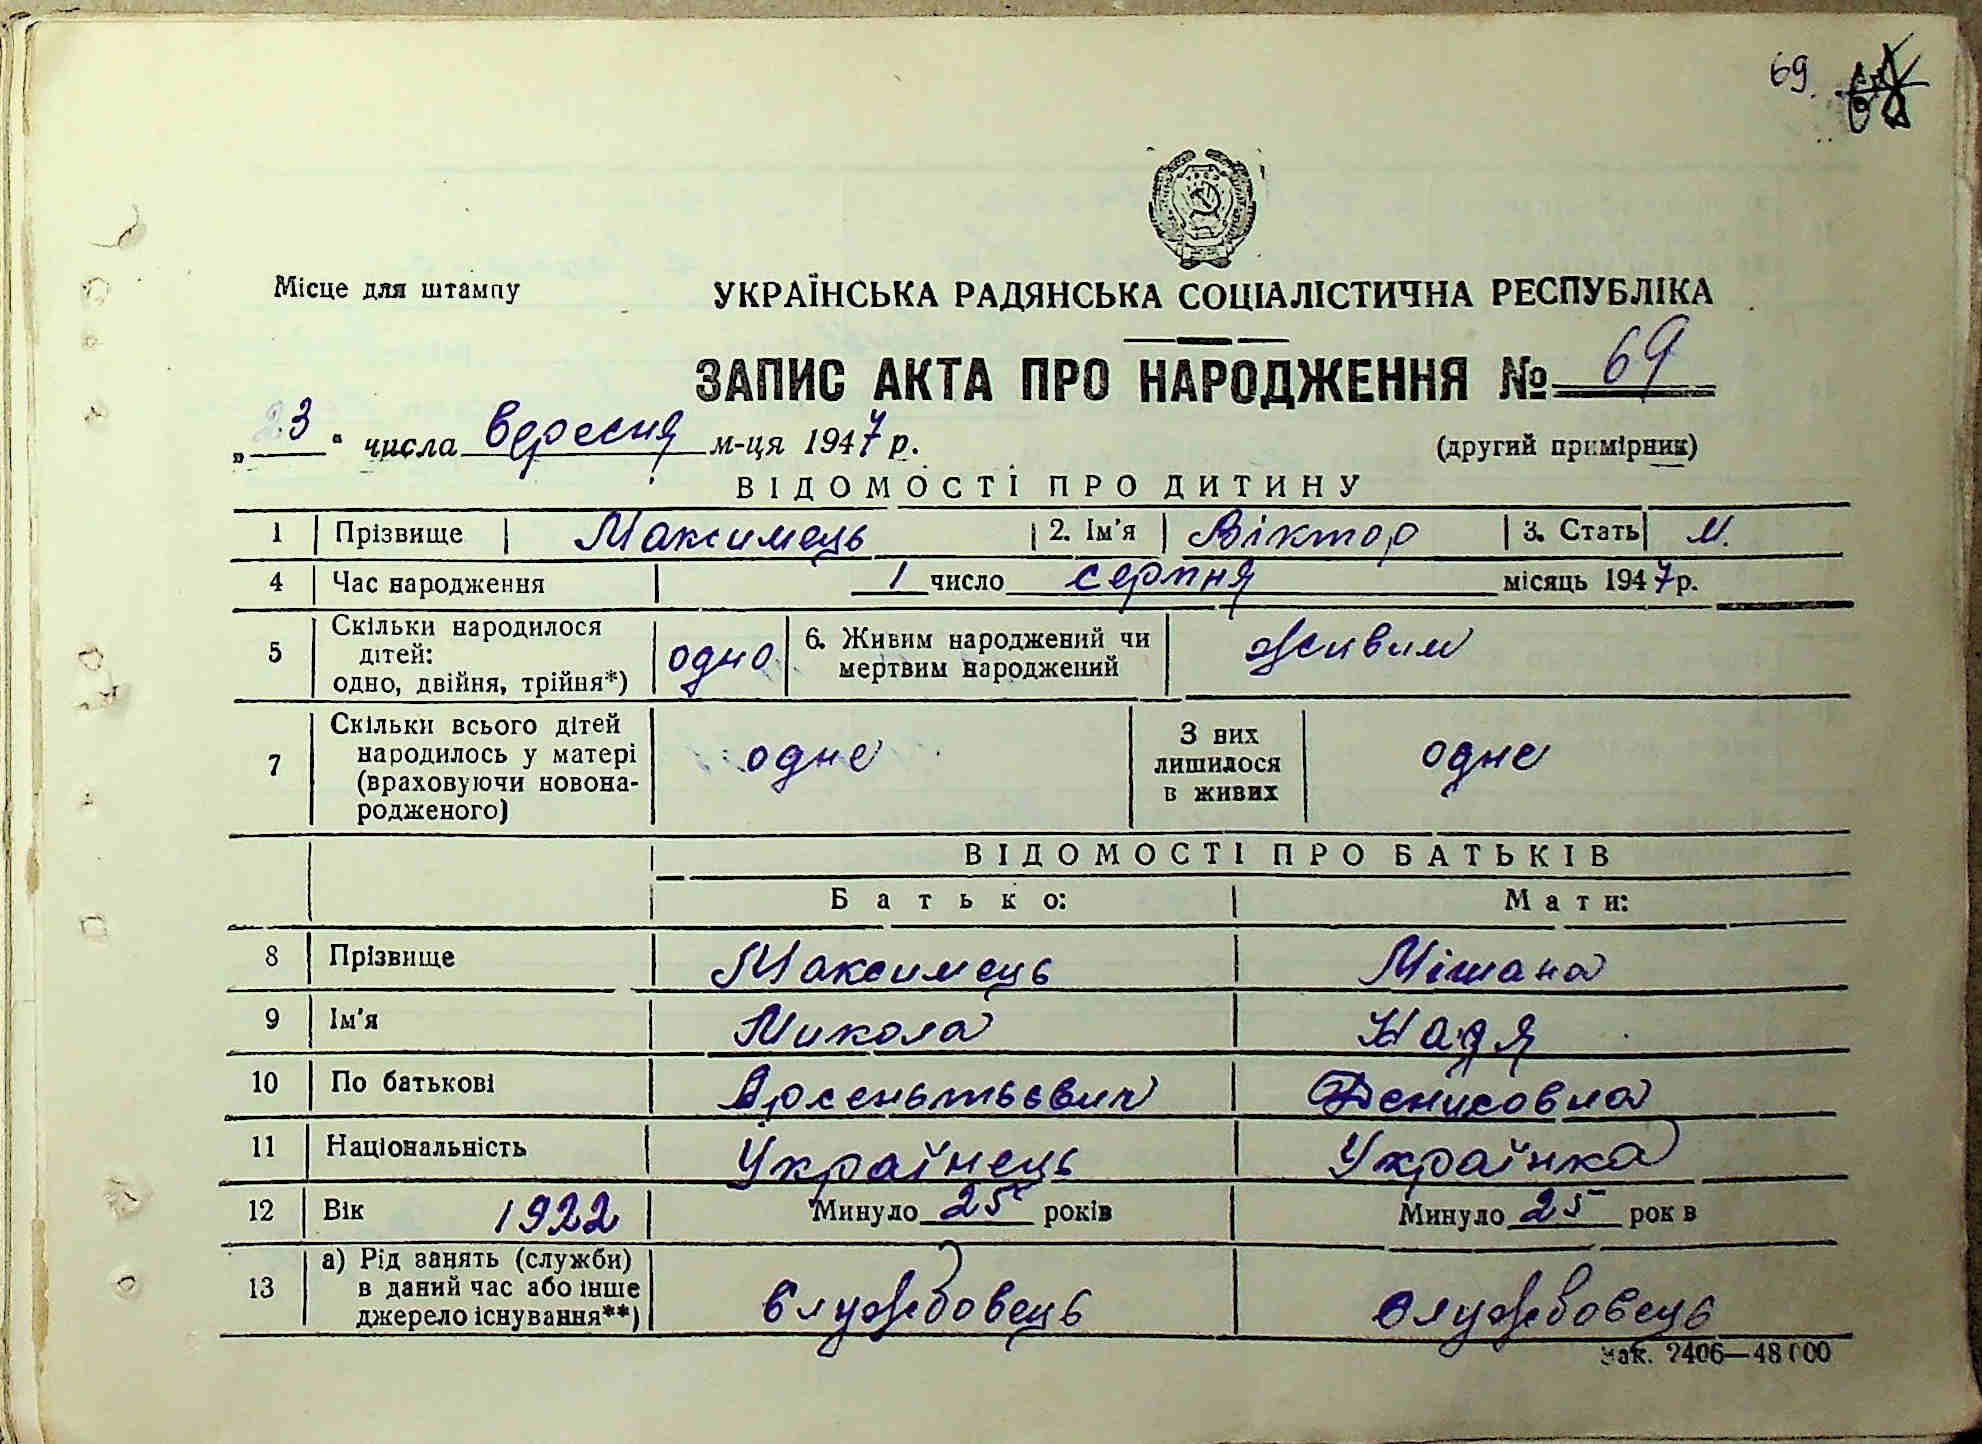 69.
Місце для штампу
УКРАЇНСЬКА РАДЯНСЬКА СОЦІАЛІСТИЧНА РЕСПУБЛІКА
ЗАПИС АКТА ПРО НАРОДЖЕННЯ № 69
„23“ числа вересня м-ця 1947 р.
(другий примірник)
ВІДОМОСТІ ПРО ДИТИНУ
1 Прізвище Максимець 2. Ім'я Віктор 3. Стать М.
4 Час народження 1 число серпня місяць 1947 р.
5 Скільки народилося дітей: одно, двійня, трійня*) одно 6. Живим народжений чи мертвим народжений живим
7 Скільки всього дітей народилось у матері (враховуючи новонародженого) одне З них лишилося в живих одне
ВІДОМОСТІ ПРО БАТЬКІВ
Батько: Мати:
8 Прізвище Максимець Мішана
9 Ім'я Микола Надя
10 По батькові Арсентьєвич Денисовна
11 Національність Українець Українка
12 Вік 1922 Минуло 25 років Минуло 25 рок в
13 а) Рід занять (служби) в даний час або інше джерело існування**) службовець службовець
Зак. 2406—48000